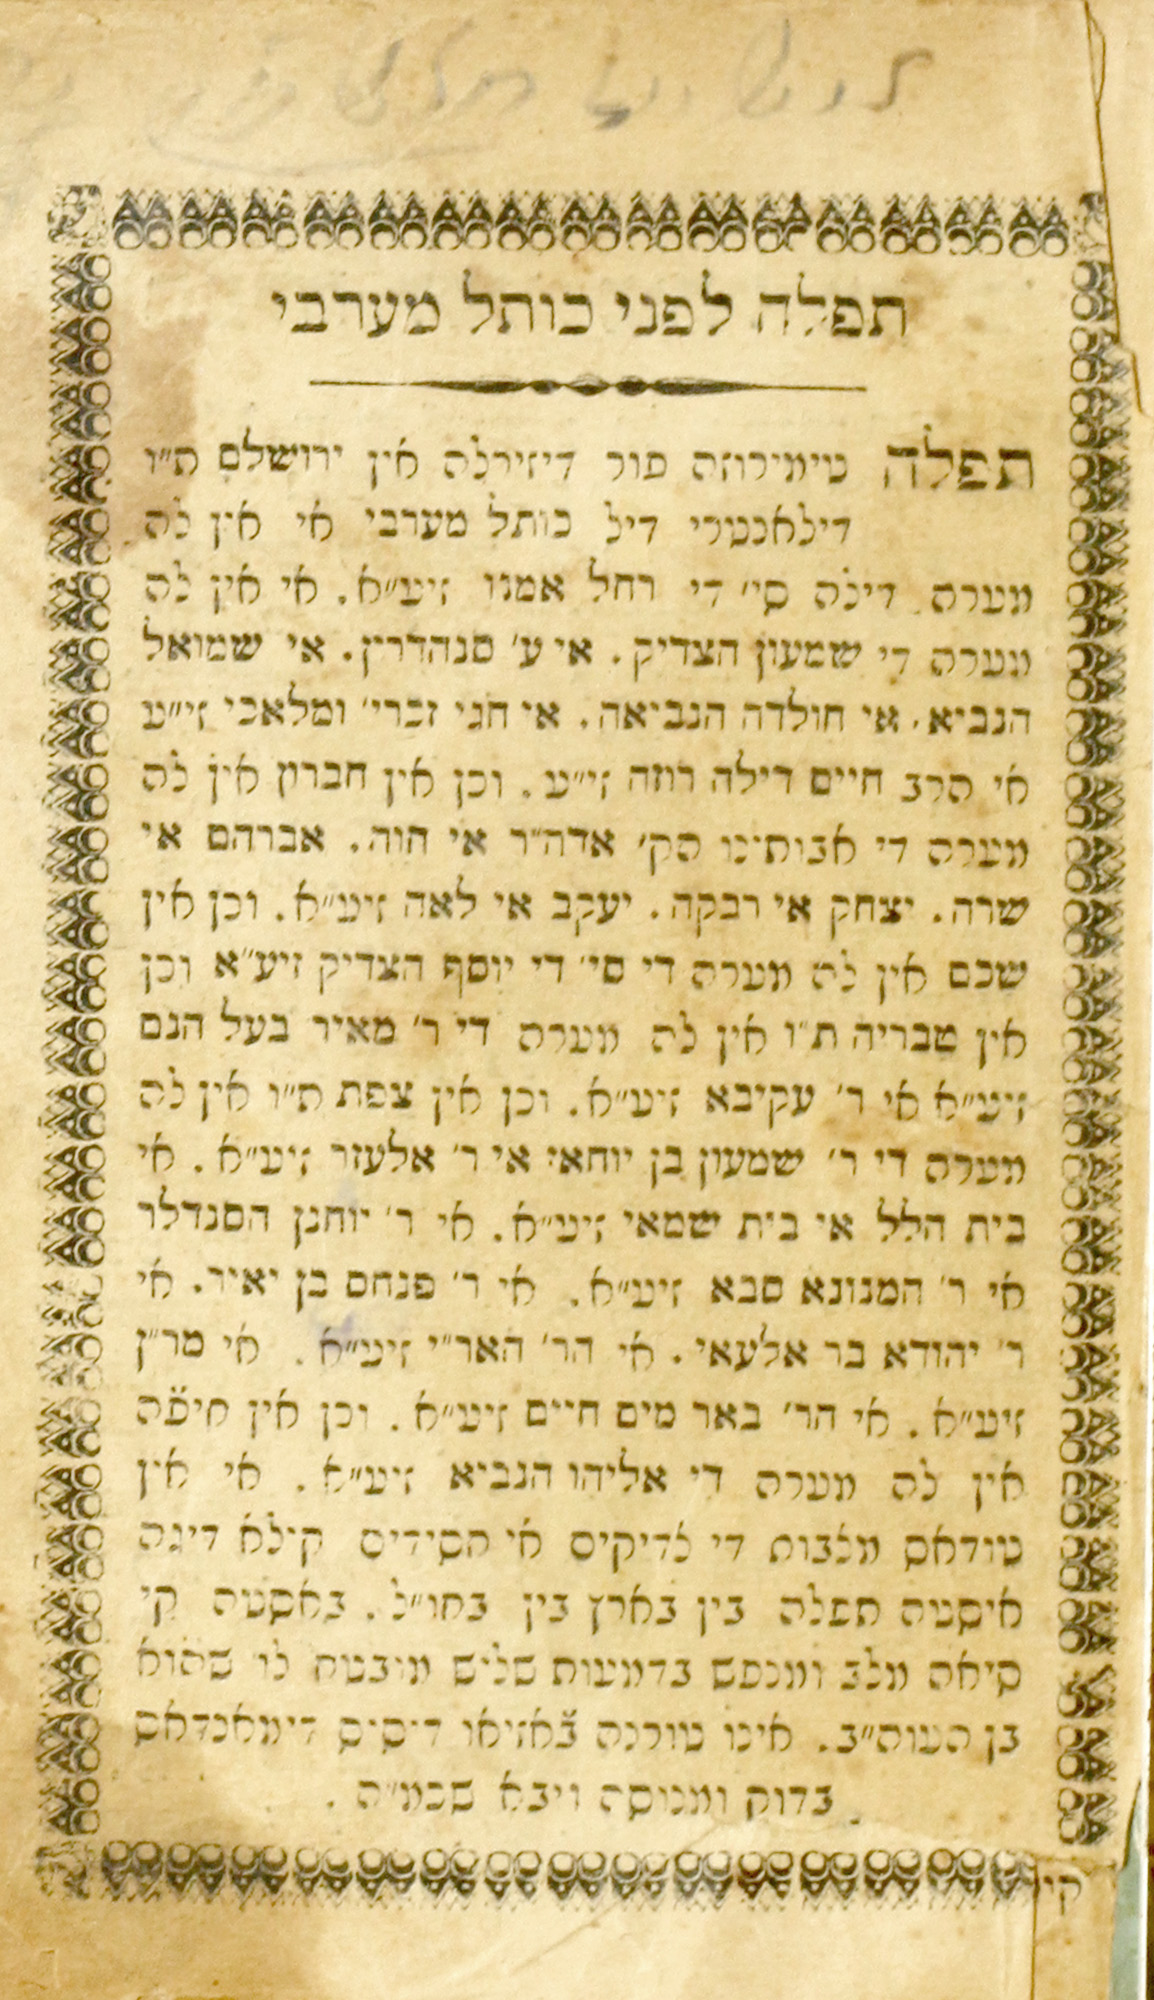 תפלה לפני כותל מערבי
תפלה טימירוזה פור דיזירלה אין ירושלם ת״ו
דילאנטרי דיל כותל מערבי אי אין לה
מערה דילה סי׳ די רחל אמנו זיע״א. אי אין לה
מערה די שמעון הצדיק. אי ע׳ סנהדרין. אי שמואל
הנביא. אי חולדה הנביאה. אי חגי זכרי׳ ומלאכי זי״ע
אי הרב חיים דילה רוזה זי״ע. וכן אין חברון אין לה
מערה די אבותינו הק׳ אדה״ר אי חוה. אברהם אי
שרה. יצחק אי רבקה. יעקב אי לאה זיע״א. וכן אין
שכם אין לה מערה די סי׳ די יוסף הצדיק זיע״א וכן
אין טבריה ת״ו אין לה מערה די ר׳ מאיר בעל הנס
זיע״א אי ר׳ עקיבא זיע״א. וכן אין צפת ת״ו אין לה
מערה די ר׳ שמעון בן יוחאי אי ר׳ אלעזר זיע״א. אי
בית הלל אי בית שמאי זיע״א. אי ר׳ יוחנן הסנדלר
אי ר׳ המנונא סבא זיע״א. אי ר׳ פנחס בן יאיר. אי
ר׳ יהודא בר אלעאי. אי הר׳ האר״י זיע״א. אי מר״ן
זיע״א. אי הר׳ באר מים חיים זיע״א. וכן אין חיפה
אין לה מערה די אליהו הנביא זיע״א. אי אין
טודאס מצבות די צדיקים אי חסידים קילא דיגה
איסטה תפלה בין בארץ בין בחו״ל. באסטה קי
סיאה מלב ומנפש בדמעות שליש מובטח לו שהוא
בן העוה״ב. אינו טורנה ב֘אזיאו דיסוס דימאנדאס
בדוק ומנוסה ויבא שכמ״ה.